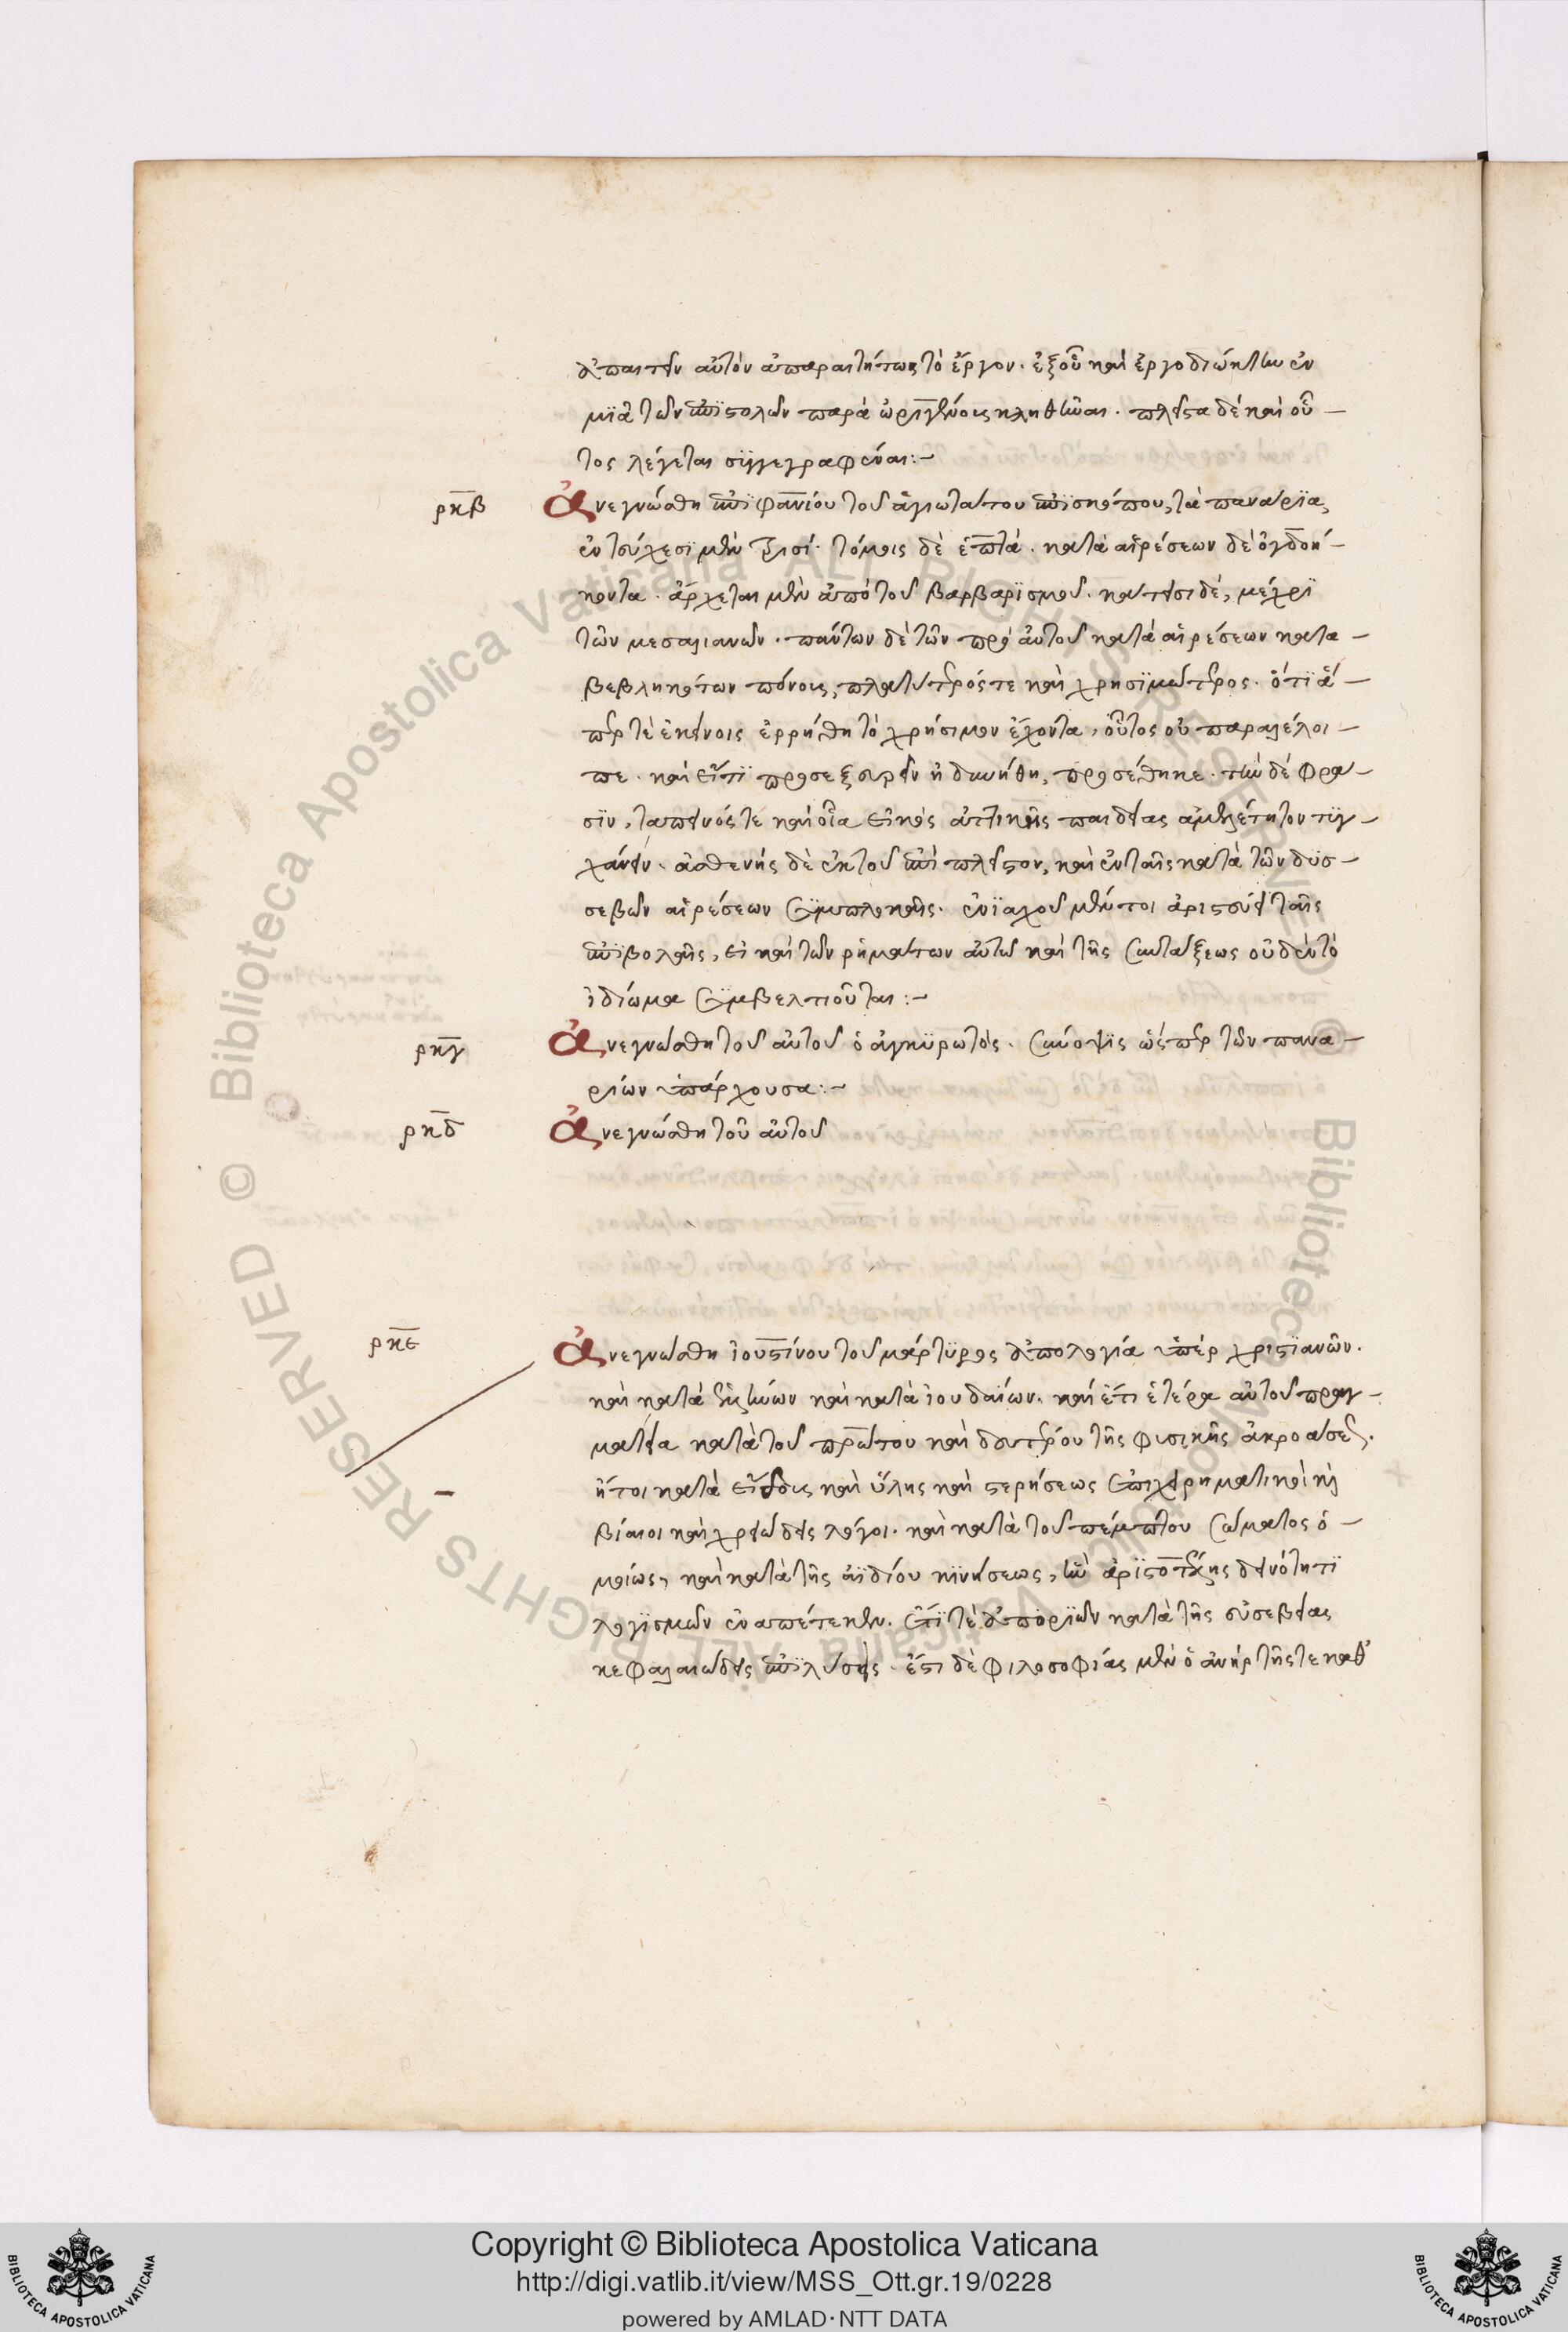 ἀπαιτεῖν αὐτὸν ἀπαραιτήτως τὸ ἔργον. ἐξ οὗ καὶ ἐργοδιώκτην ἐν
μϊᾶ τῶν ἐπϊστολῶν παρὰ ὠριγένους κληθῆναι. πλεῖστα δὲ καὶ οὗ-
τος λέγεται συγγεγραφέναι:-
ρκβ
Ἀνεγνώσθη ἐπϊφανίου τοῦ ἁγιωτάτου ἐπϊσκόπου, τὰ πανάρϊα,
ἐν τεύχεσϊ μὲν τρισί. τόμοις δὲ ἑπτά. κατὰ αἱρέσεων δὲ ὀγδοή-
κοντα. ἄρχεται μὲν ἀπὸ τοῦ βαρβαρϊσμοῦ. κάτεισι δὲ, μέχρϊ
τῶν μεσαλιανῶν. πάντων δὲ τῶν πρὸ αὐτοῦ κατὰ αἱρέσεων κατα-
βεβληκότων πόνους, πλατύτερός τε καὶ χρησϊμώτερος. ὅτϊ ἅ-
περ τὲ ἐκείνοις ἐρρήθη τὸ χρήσιμον ἔχοντα, οὗτος οὐ παραλέλοι-
πε. καὶ εἴ τϊ προσεξευρεῖν ἠδυνήθη, προσέθηκε. τὴν δὲ φρά-
σϊν, ταπεινός τε καὶ οἷα εἰκὸς ἀττικῆς παιδείας ἀμελέτητον τυγ-
χάνειν. ἀσθενὴς δὲ ἐκ τοῦ ἐπὶ πλεῖστον, καὶ ἐν ταῖς κατὰ τῶν δυσ-
σεβῶν αἱρέσεων συμπλοκαῖς. ἐνϊαχοῦ μέντοι ἀριστεύει ταῖς
ἐπϊβολαῖς, εἰ καὶ τῶν ῥημάτων αὐτῶ καὶ τῆς συντάξεως οὐδὲν τὸ
ἰδίωμα συμβελτιοῦται:-
ρκγ
Ἀνεγνώσθη τοῦ αὐτοῦ ὁ ἀγκϋρωτός. σύνοψϊς ὥσπερ τῶν πανα-
ρίων ὑπάρχουσα:-
ρκδ
Ἀνεγνώσθη τοῦ αὐτοῦ
ρκε
Ἀνεγνώσθη ἰουστίνου τοῦ μάρτϋρος ἀπολογία ὑπὲρ χριστϊανῶν.
καὶ κατὰ ἑλλήνων καὶ κατὰ ἰουδαίων. καὶ ἔτι ἑτέρα αὐτοῦ πραγ-
ματεία κατὰ τοῦ πρώτου καὶ δευτέρου τῆς φυσικῆς ἀκροάσεως.
ἤτοι κατὰ εἴδους καὶ ὕλης καὶ στερήσεως ἐπιχειρηματικοὶ καὶ
βίαιοι καὶ χρειώδεις λόγοι. καὶ κατὰ τοῦ πέμπτου σώματος ὁ-
μοίως, καὶ κατὰ τῆς ἀϊδίου κϊνήσεως, ἣν ἀρϊστοτέλης δεινότητϊ
λογϊσμῶν ἐναπέτεκεν. ἔτϊ τὲ ἀπορϊῶν κατὰ τῆς εὐσεβείας
κεφαλαιώδεις ἐπϊλύσεις. ἔστι δὲ φιλοσοφίας μὲν ὁ ἀνὴρ τῆς τε καθ᾽
Copyright © Biblioteca Apostolica Vaticana
http://digi.vatlib.it/view/MSS_Ott.gr.19/0228
powered by AMLAD·NTT DATA
BIBLIOTECA APOSTOLICA VATICANA
BIBLIOTECA APOSTOLICA VATICANA
Biblioteca Apostolica Vaticana ALL RIGHTS RESERVED ©
Biblioteca Apostolica Vaticana ALL RIGHTS RESERVED ©